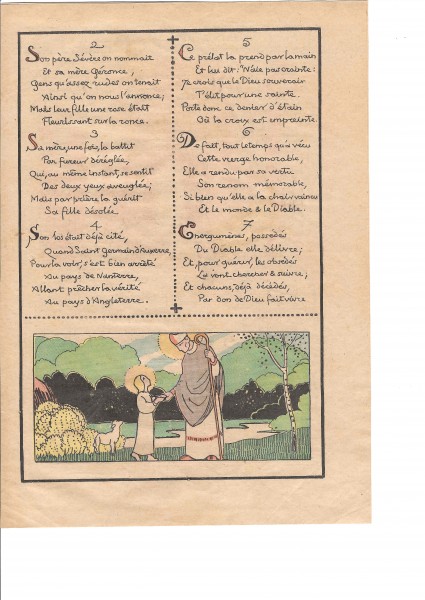 2
Son père Sévère on nommait
Et sa mère Géronce,
Gens qu'assez rudes on tenait
Ainsi qu'on nous l'annonce;
Mais leur fille une rose était
Fleurissant sur la ronce.
3
Sa mère, une fois, la battit
Par fureur déréglée,
Qui, au même instant, se sentit
Des deux yeux aveuglée;
Mais par prière la guérit
Sa fille désolée.
4
Son los était déjà cité,
Quand Saint Germain d'Auxerre,
Pour la voir, s'est bien arrêté
Au pays de Nanterre,
Allant prêcher la vérité
Au pays d'Angleterre.
5
Ce prélat la prend par la main
Et lui dit: "N'aie pas crainte:
Je crois que le Dieu souverain
T'élit pour une sainte.
Porte donc ce denier d'étain
Où la croix est empreinte.
6
De fait, tout le temps qu'a vécu
Cette vierge honorable,
Elle a rendu par sa vertu
Son renom mémorable,
Si bien qu'elle a la chair vaincu
Et le monde & le Diable.
7
Energumènes, possédés
Du Diable elle délivre;
Et, pour guérir, les obsédés
La vont chercher & suivre;
Et chacuns, déjà décédés,
Par don de Dieu fait vivre